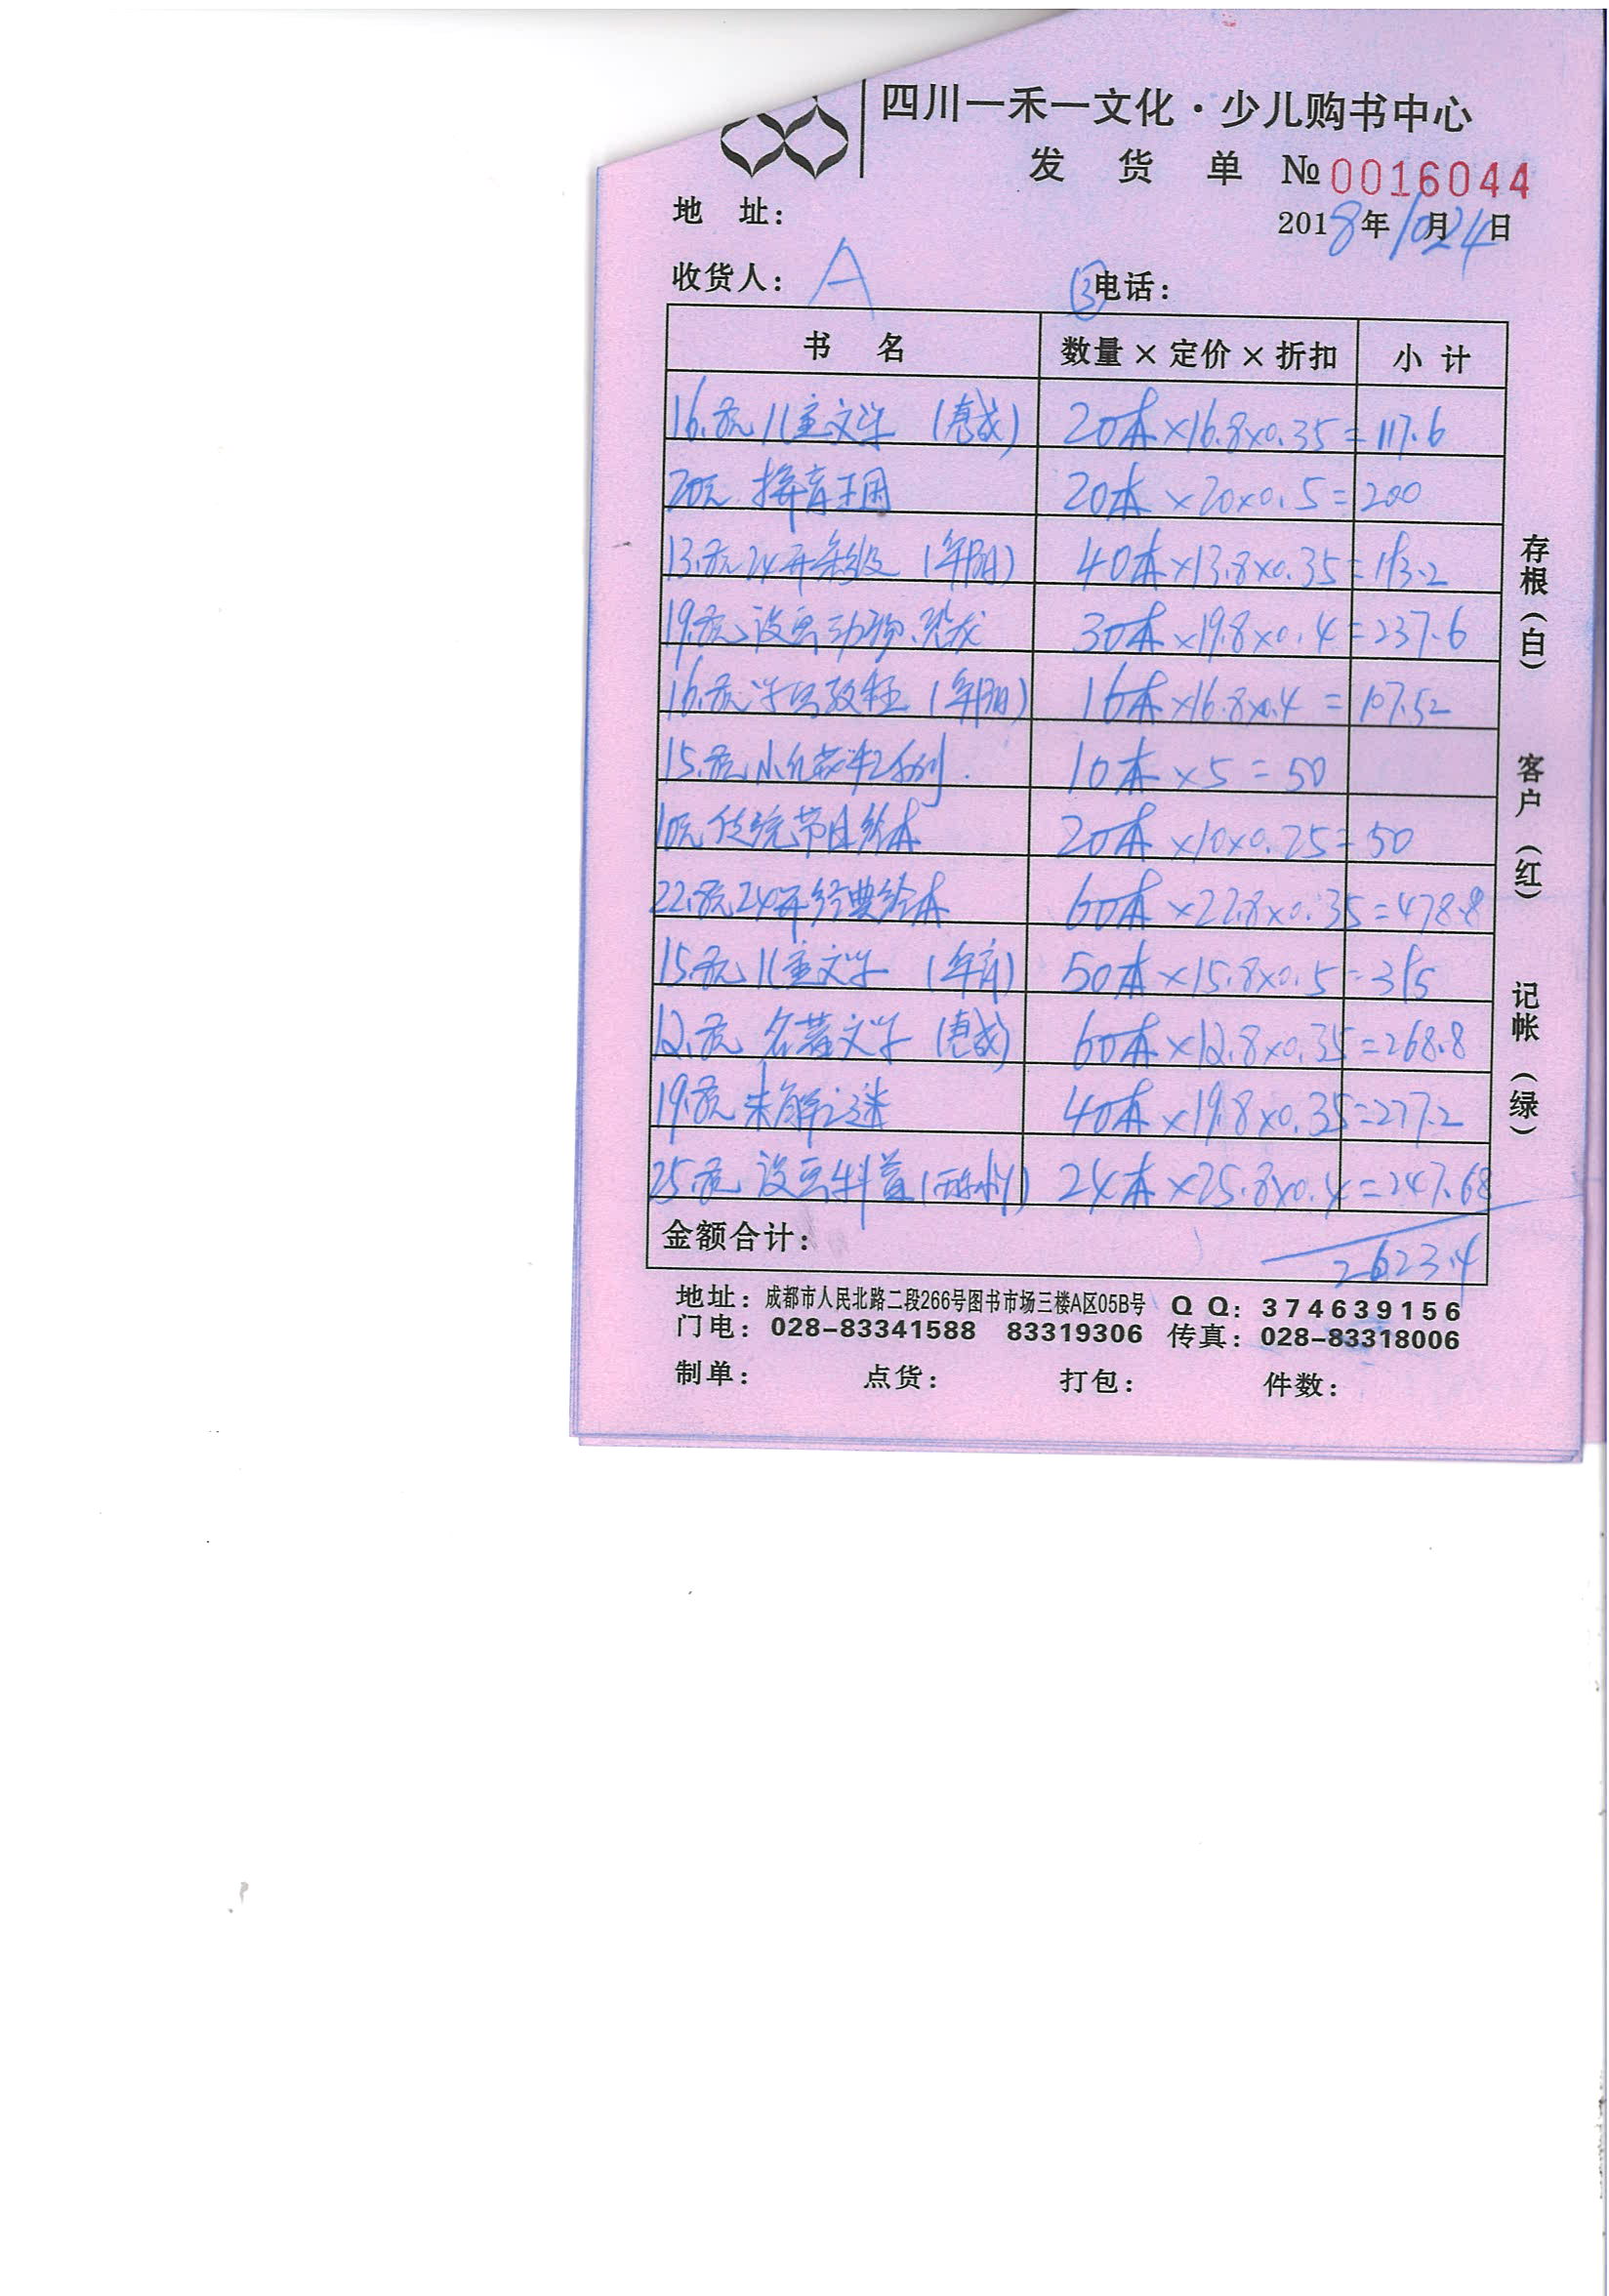 四川一禾一文化·少儿购书中心
发 货 单 № 0016044
地 址：
2018年10月24日
收货人： A ③ 电话：
书 名 数量×定价×折扣 小 计
16.8元 儿童文学 20本×16.8×0.35=117.6
20元 拼音王国 20本×20×0.5=200
13.8元 24开 40本×13.8×0.35=193.2
19.8元 动物、恐龙 30本×19.8×0.4=237.6
16.8元 16本×16.8×0.4=107.52
15.8元 10本×5=50
10元 传统节日绘本 20本×10×0.25=50
22.8元 24开经典绘本 60本×22.8×0.35=478.8
15.8元 儿童文学 50本×15.8×0.5=395
12.8元 名著文学 60本×12.8×0.35=268.8
19.8元 未解之谜 40本×19.8×0.35=277.2
25.8元 24本×25.8×0.4=247.68
金额合计： 2623.4
地址：成都市人民北路二段266号图书市场三楼A区05B号 QQ：374639156
门电：028-83341588 83319306 传真：028-83318006
制单： 点货： 打包： 件数：
存根（白） 客户（红） 记帐（绿）